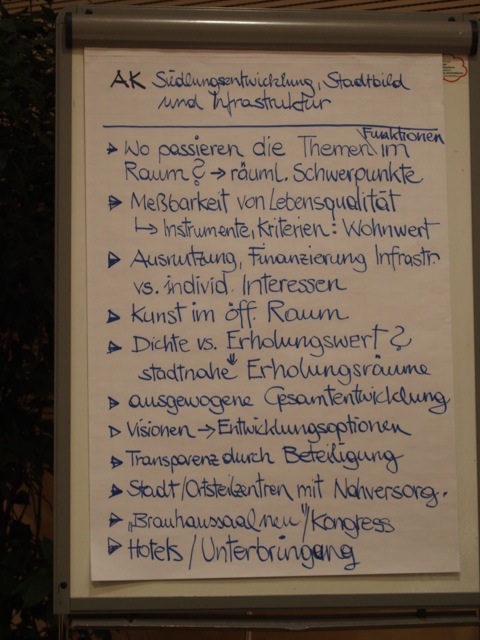 AK Siedlungsentwicklung, Stadtbild
und Infrastruktur
Funktionen
Wo passieren die Themen \ im
Raum? → räuml. Schwerpunkte
Meßbarkeit von Lebensqualität
↳ Instrumente, Kriterien: Wohnwert
Ausnutzung, Finanzierung Infrastr
vs. individ. Interessen
Kunst im öff. Raum
Dichte vs. Erholungswert?
stadtnahe Erholungsräume
ausgewogene Gesamtentwicklung
Visionen → Entwicklungsoptionen
Transparenz durch Beteiligung
Stadt/Ortsteilzentren mit Nahversorg..
„Brauhaussaal neu"/Kongress
Hotels/Unterbringung